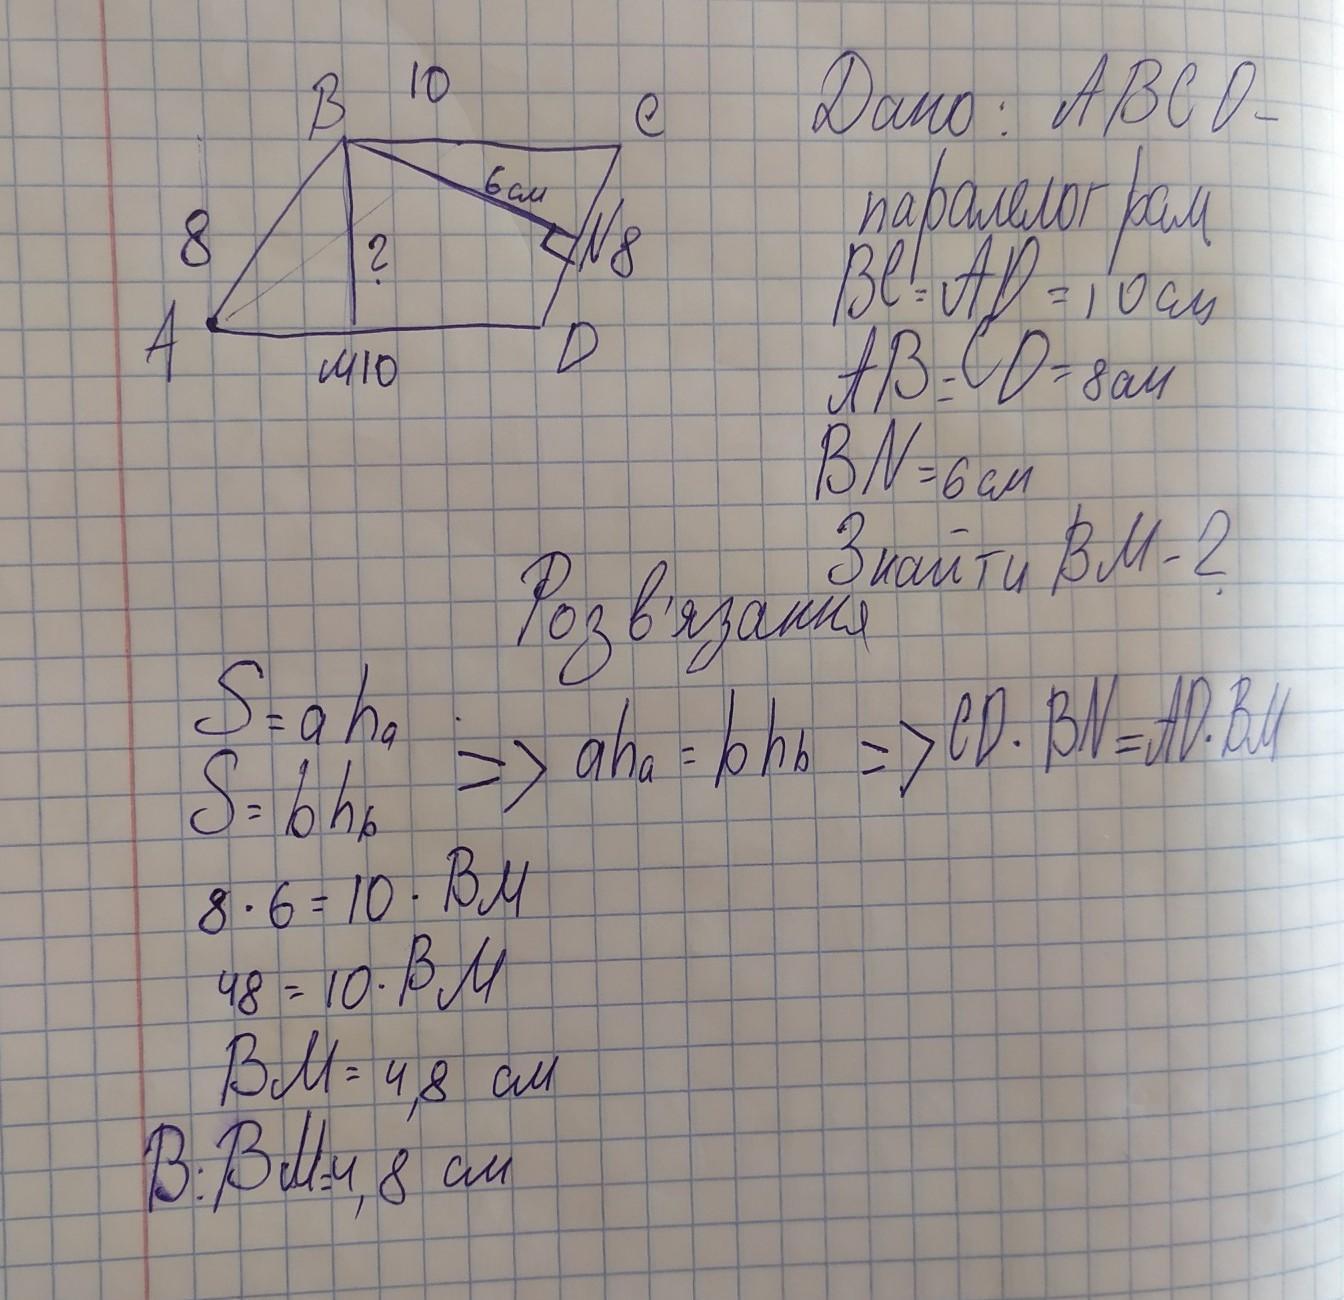 10
B
C
6см
8
?
N8
A
M10
D
Дано: ABCD-
паралелограм
BC=AD=10см
AB=CD=8см
BN=6см
Знайти BM-?
Розв'язання
S=aha
S=bhb
=> aha=bhb => CD·BN=AD·BM
8·6=10·BM
48=10·BM
BM=4,8 см
В: BM=4,8 см